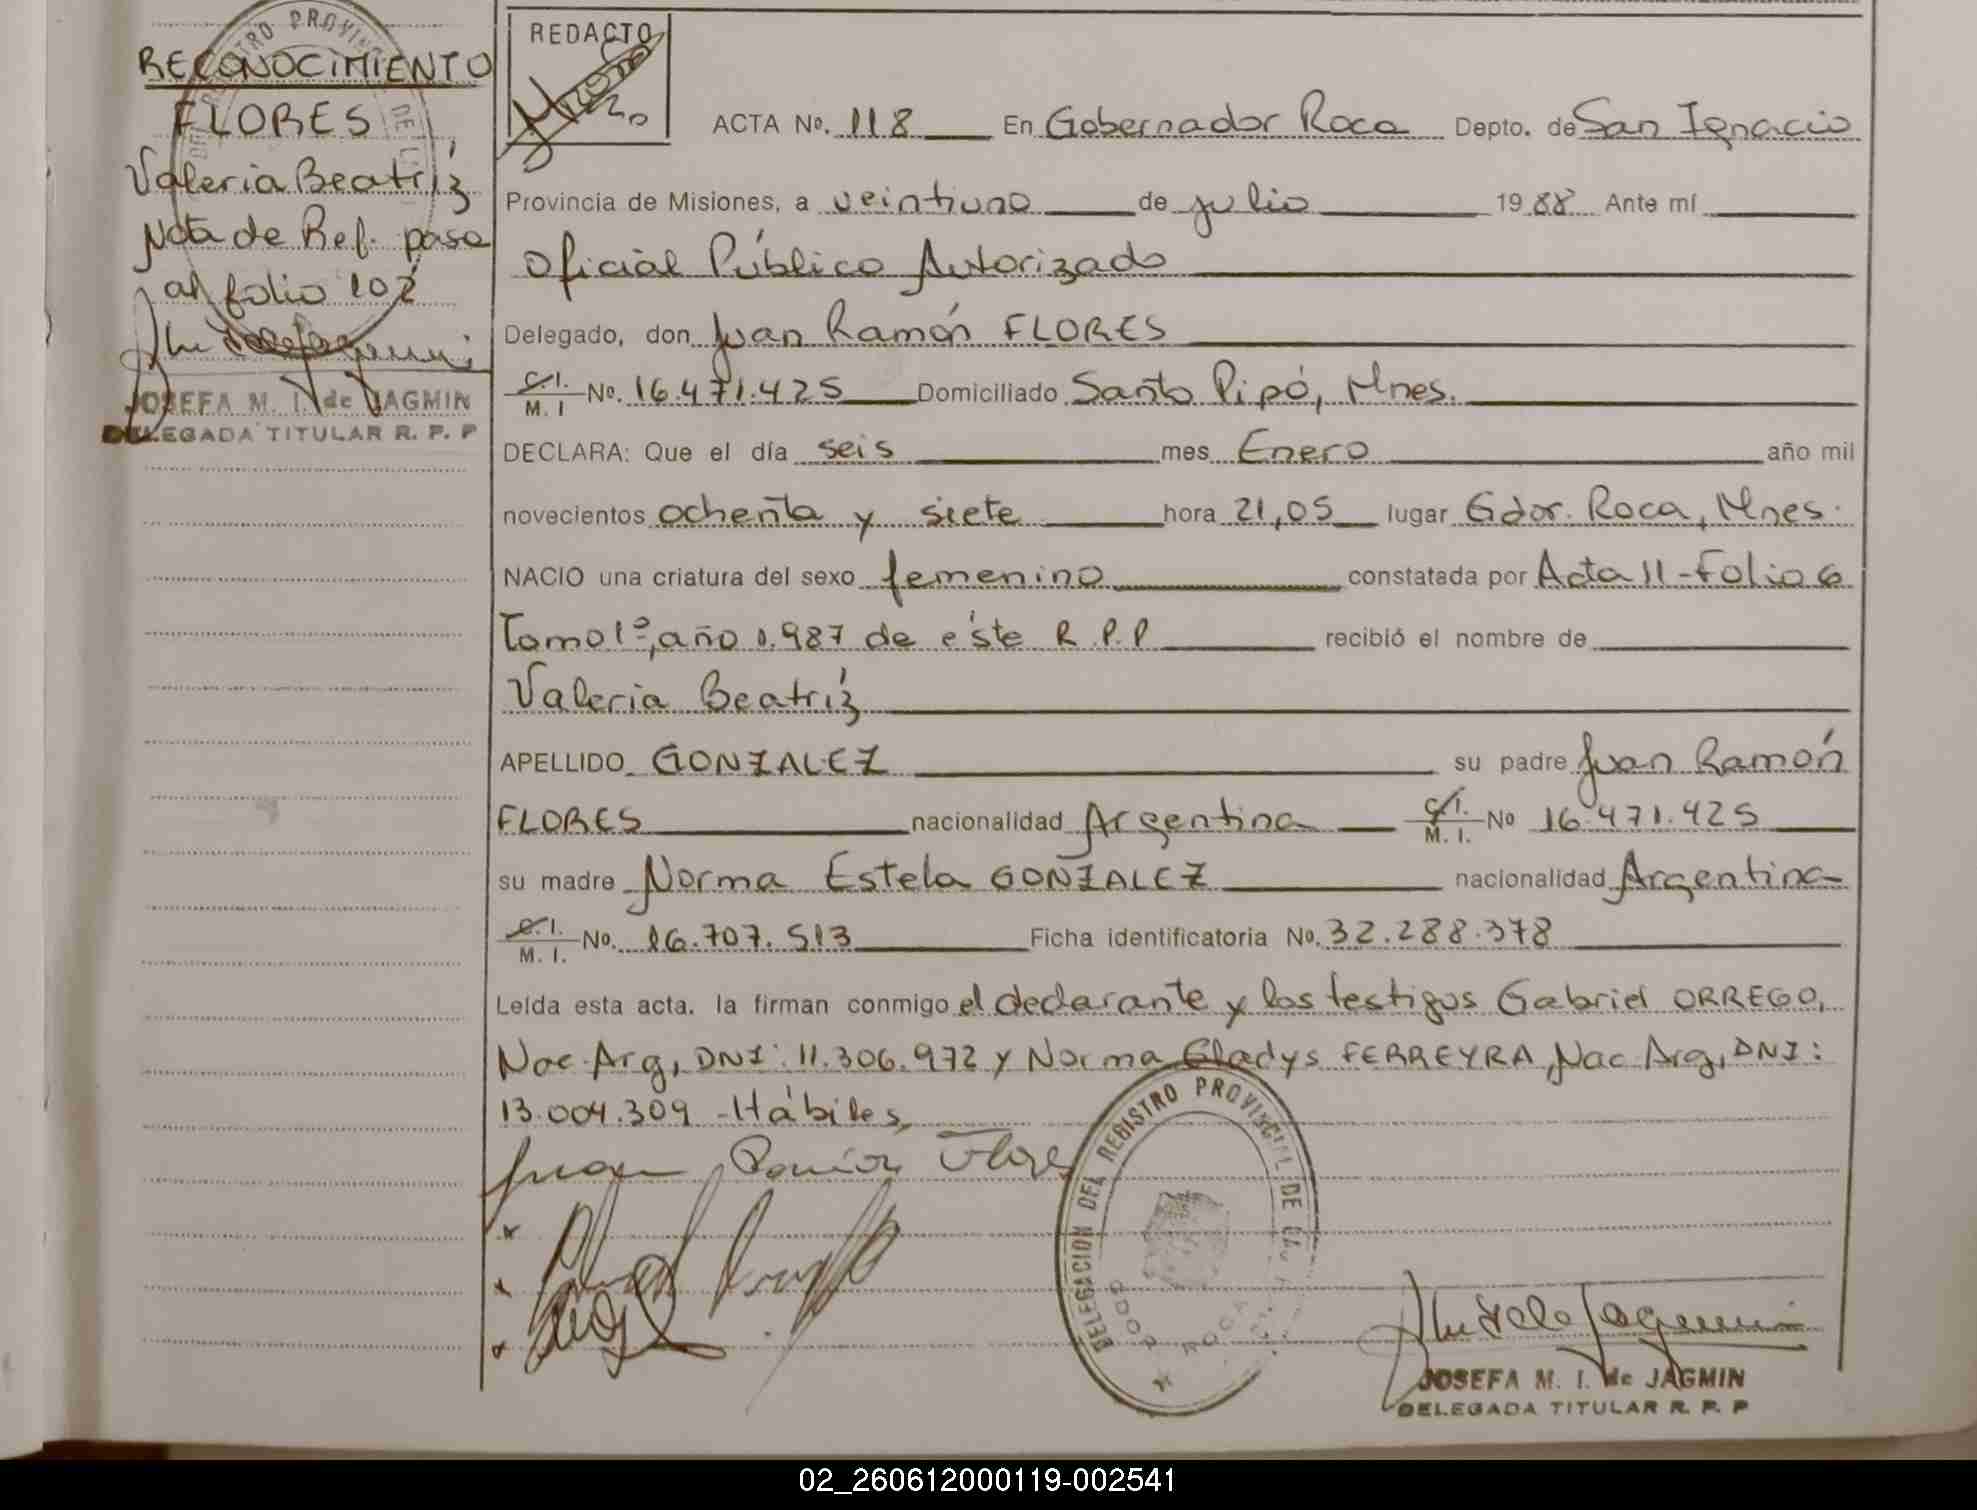 RECONOCIMIENTO
FLORES
Valeria Beatríz
Nota de Ref. pasa
al folio 102
JOSEFA M. I. de JAGMIN
DELEGADA TITULAR R. P. P
REDACTO
ACTA No. 118 En Gobernador Roca Depto. de San Ignacio
Provincia de Misiones, a veintiuno de julio 1988 Ante mí
Oficial Público Autorizado
Delegado, don Juan Ramón FLORES
C.I. M. I No. 16.471.425 Domiciliado Santo Pipó, Mnes.
DECLARA: Que el día seis mes Enero año mil
novecientos ochenta y siete hora 21,05 lugar Gdor. Roca, Mnes.
NACIO una criatura del sexo femenino constatada por Acta 11-Folio 6
Tomo 1º, año 1.987 de éste R.P.P recibió el nombre de
Valeria Beatríz
APELLIDO GONZALEZ su padre Juan Ramón
FLORES nacionalidad Argentina C.I. M. I. No 16.471.425
su madre Norma Estela GONZALEZ nacionalidad Argentina
C.I. M. I. No. 16.707.513 Ficha identificatoria No. 32.288.378
Leída esta acta, la firman conmigo el declarante y los testigos Gabriel ORREGO,
Nac. Arg, DNI: 11.306.972 y Norma Gladys FERREYRA, Nac. Arg, DNI:
13.004.309 - Hábiles,
Juan Ramón Flores
DELEGACION DEL REGISTRO PROVINCIAL DE
GDOR ROCA
JOSEFA M. I. de JAGMIN
DELEGADA TITULAR R. P. P
02_260612000119-002541